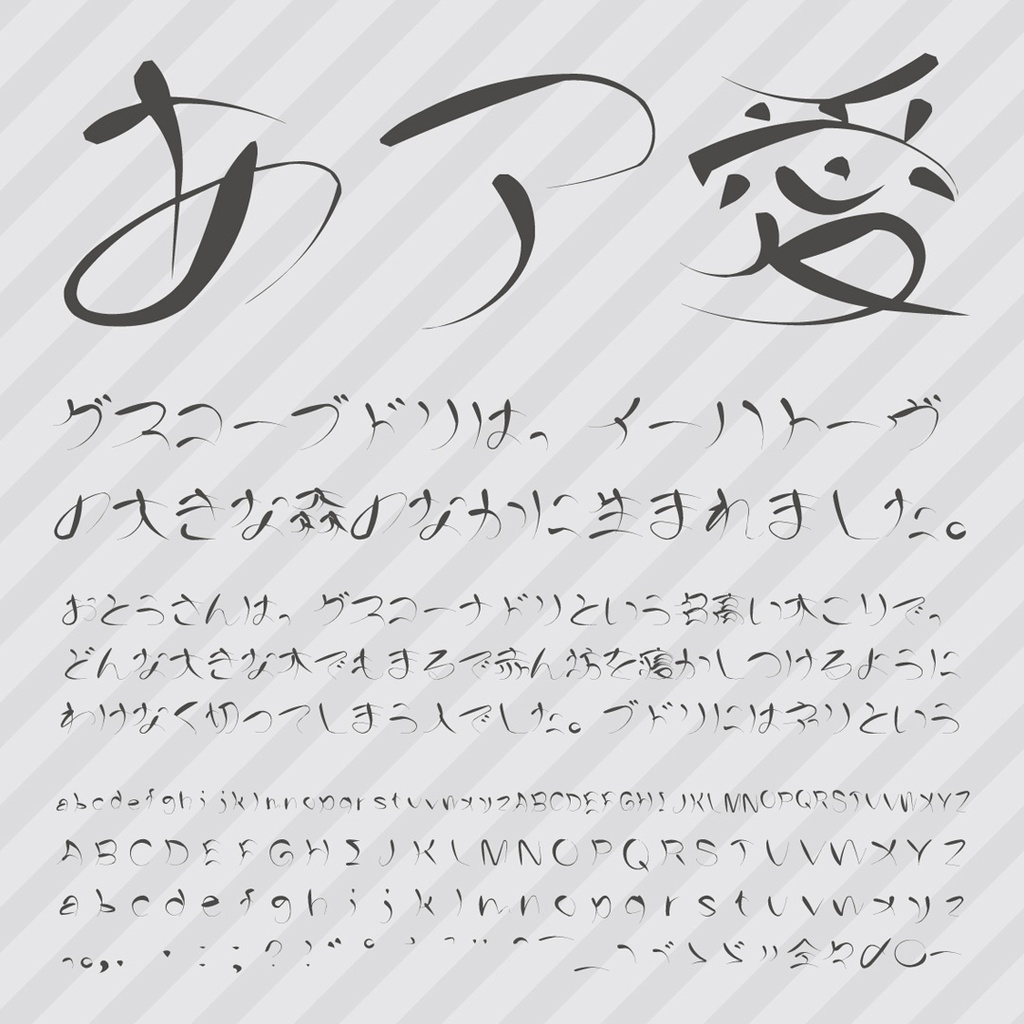 あア愛
グスコーブドリは、イーハトーヴ
の大きな森のなかに生まれました。
おとうさんは、グスコーナドリという名高い木こりで、
どんな大きな木でもまるで赤ん坊を寝かしつけるように
わけなく切ってしまう人でした。ブドリにはネリという
abcdefghijklmnopqrstuvwxyzABCDEFGHIJKLMNOPQRSTUVWXYZ
ABCDEFGHIJKLMNOPQRSTUVWXYZ
abcdefghijklmnopqrstuvwxyz
、。,.・:;?!゛゜